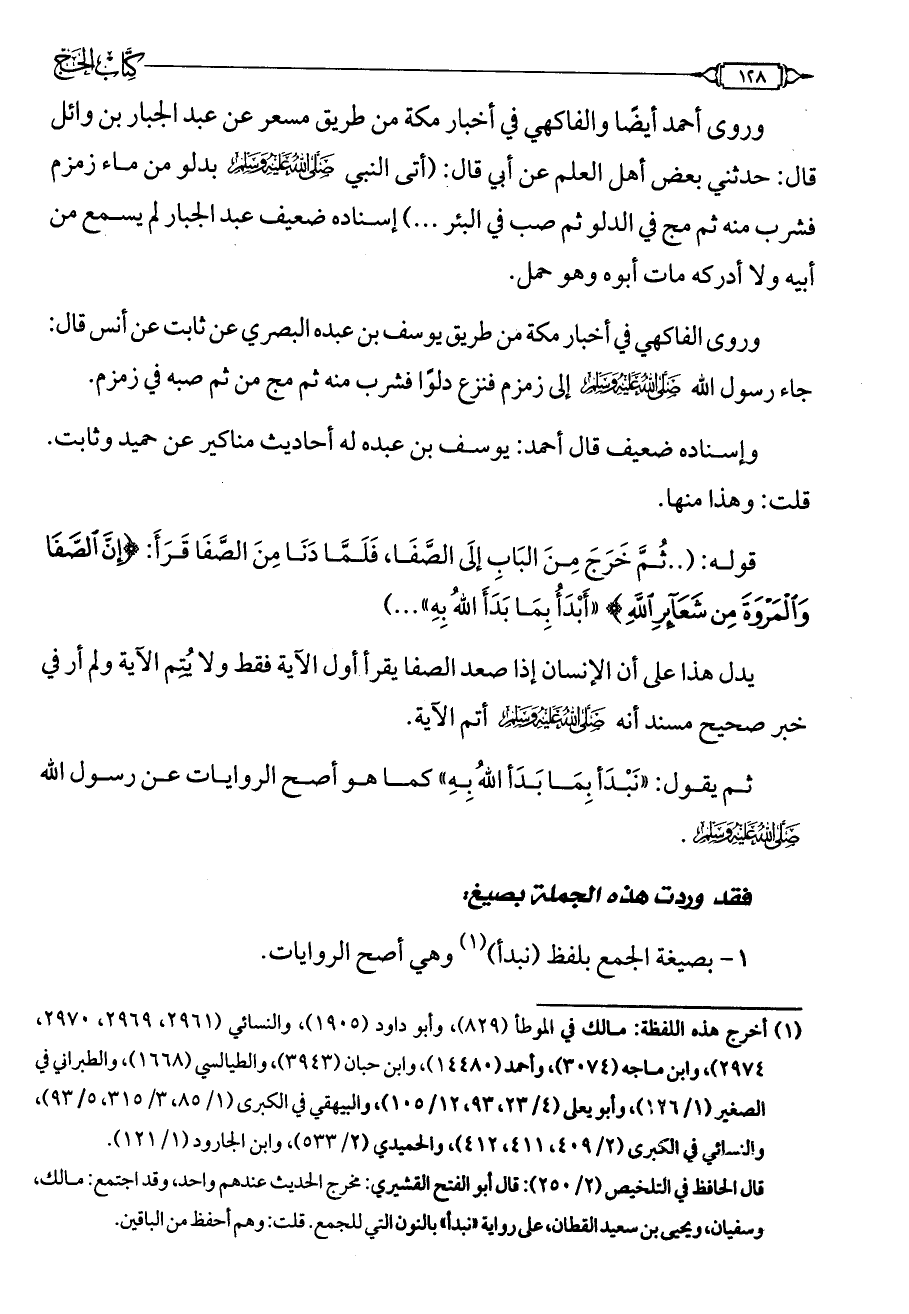 كتاب الحج
١٢٨
وروى أحمد أيضًا والفاكهي في أخبار مكة من طريق مسعر عن عبد الجبار بن وائل
قال: حدثني بعض أهل العلم عن أبي قال: (أتى النبي صَلَّى اللَّهُ عَلَيْهِ وَسَلَّمَ بدلو من ماء زمزم
فشرب منه ثم مج في الدلو ثم صب في البئر ...) إسناده ضعيف عبد الجبار لم يسمع من
أبيه ولا أدركه مات أبوه وهو حمل.
وروى الفاكهي في أخبار مكة من طريق يوسف بن عبده البصري عن ثابت عن أنس قال:
جاء رسول الله صَلَّى اللَّهُ عَلَيْهِ وَسَلَّمَ إلى زمزم فنزع دلوًا فشرب منه ثم مج من ثم صبه في زمزم.
وإسناده ضعيف قال أحمد: يوسف بن عبده له أحاديث مناكير عن حميد وثابت.
قلت: وهذا منها.
قوله: (..ثُمَّ خَرَجَ مِنَ البَابِ إلَى الصَّفَا، فَلَمَّا دَنَا مِنَ الصَّفَا قَرَأَ: ﴿إِنَّ ٱلصَّفَا
وَٱلْمَرْوَةَ مِن شَعَآئِرِ ٱللَّهِ﴾ «أَبْدَأُ بِمَا بَدَأَ اللهُ بِهِ»...)
يدل هذا على أن الإنسان إذا صعد الصفا يقرأ أول الآية فقط ولا يُتِم الآية ولم أر في
خبر صحيح مسند أنه صَلَّى اللَّهُ عَلَيْهِ وَسَلَّمَ أتم الآية.
ثم يقول: «نَبْدَأ بِمَا بَدَأ اللهُ بِهِ» كما هو أصح الروايات عن رسول الله
صَلَّى اللَّهُ عَلَيْهِ وَسَلَّمَ .
فقد وردت هذه الجملة بصيغ:
١- بصيغة الجمع بلفظ (نبدأ)(١) وهي أصح الروايات.
(١) أخرج هذه اللفظة: مالك في الموطأ (٨٢٩)، وأبو داود (١٩٠٥)، والنسائي (٢٩٦١، ٢٩٦٩، ٢٩٧٠،
٢٩٧٤)، وابن ماجه (٣٠٧٤)، وأحمد (١٤٤٨٠)، وابن حبان (٣٩٤٣)، والطيالسي (١٦٦٨)، والطبراني في
الصغير (١/ ١٢٦)، وأبو يعلى (٤/ ٢٣، ٩٣، ١٢/ ١٠٥)، والبيهقي في الكبرى (١/ ٨٥، ٣/ ٣١٥، ٥/ ٩٣)،
والنسائي في الكبرى (٢/ ٤٠٩، ٤١١، ٤١٢)، والحميدي (٢/ ٥٣٣)، وابن الجارود (١/ ١٢١).
قال الحافظ في التلخيص (٢/ ٢٥٠): قال أبو الفتح القشيري: مخرج الحديث عندهم واحد، وقد اجتمع: مالك،
وسفيان، ويحيى بن سعيد القطان، على رواية «نبدأ» بالنون التي للجمع. قلت: وهم أحفظ من الباقين.